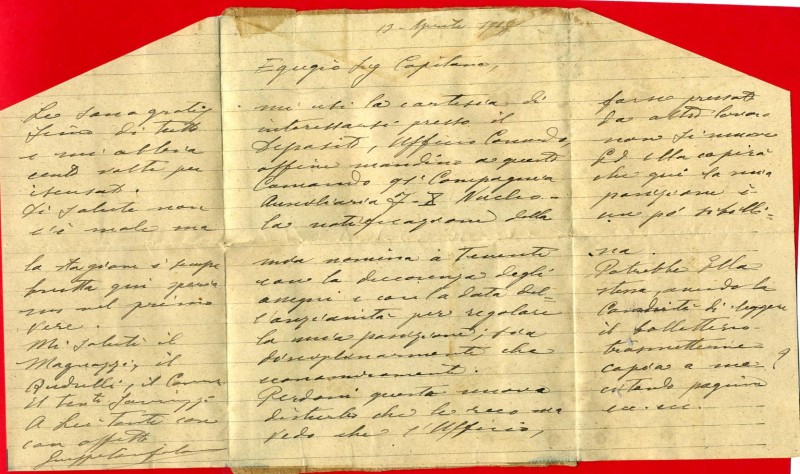 13 Aprile
Egregio Sig Capitano,
mi usi la cortesia di
interessarsi presso il
Deposito, Ufficio Comando,
affine mandino a questo
Comando 91ª Compagnia
Ausiliaria Nucleo
la notificazione della
mia nomina a Tenente
con la decorenza degli
assegni e con la data del-
l'anzianità per regolare
la mia posizione, sia
disciplinarmente che
economicamente.
Perdoni questo nuovo
disturbo che le reco ma
vedo che l'Ufficio,
forse pressato
da altro lavoro
non si muove
Ed ella capirà
che qui la mia
posizione è
un pò ridicoli-
na.
Potrebbe Ella
stessa, avendo la
di leggere
il bollettino
trasmettermene
copia a me
citando pagina
ec. ec. ?
Le sono grato
sino di tutto
e mi abbia
cento volte per
iscusato.
Di salute non
c'è male ma
la stagione è sempre
brutta qui
mo nel primo
vere.
Mi saluti il
il
il
il tent.
A Lei tante cose
con affetto